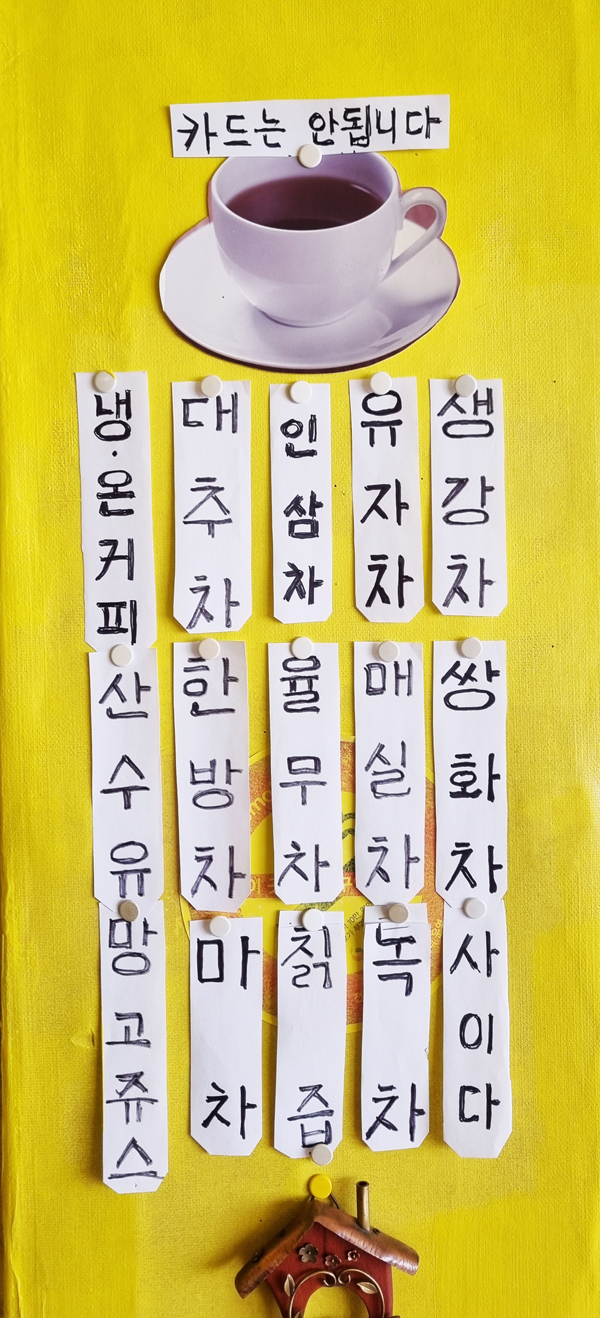 카드는 안됩니다
냉·온커피
대추차
인삼차
유자차
생강차
산수유
한방차
율무차
매실차
쌍화차
망고쥬스
마차
칡즙
녹차
사이다